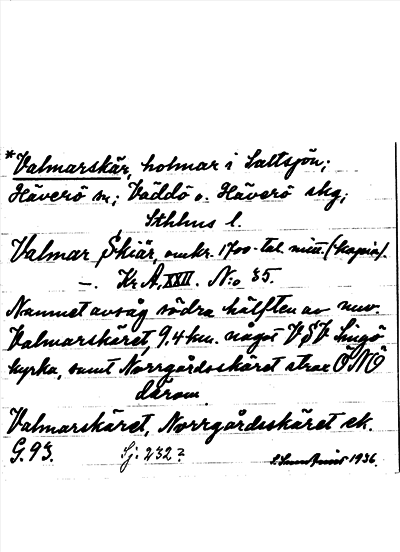 *Valmarskär, holmar i Saltsjön;
Häverö sn; Väddö o. Häverö skg;
Sthlms l.
Valmar Skiär, omkr. 1700-tal. mitt. (kopia).
–. Kr. A, XXII. N:o 35.
Namnet avsåg södra hälften av nuv.
Valmarskäret, 9.4 km. något V.S.V. Singö
kyrka, samt Norrgårdsskäret strax ÖNÖ
därom.
Valmarskäret, Norrgårdsskäret ek.
G. 93. Sj: 232?
1936.